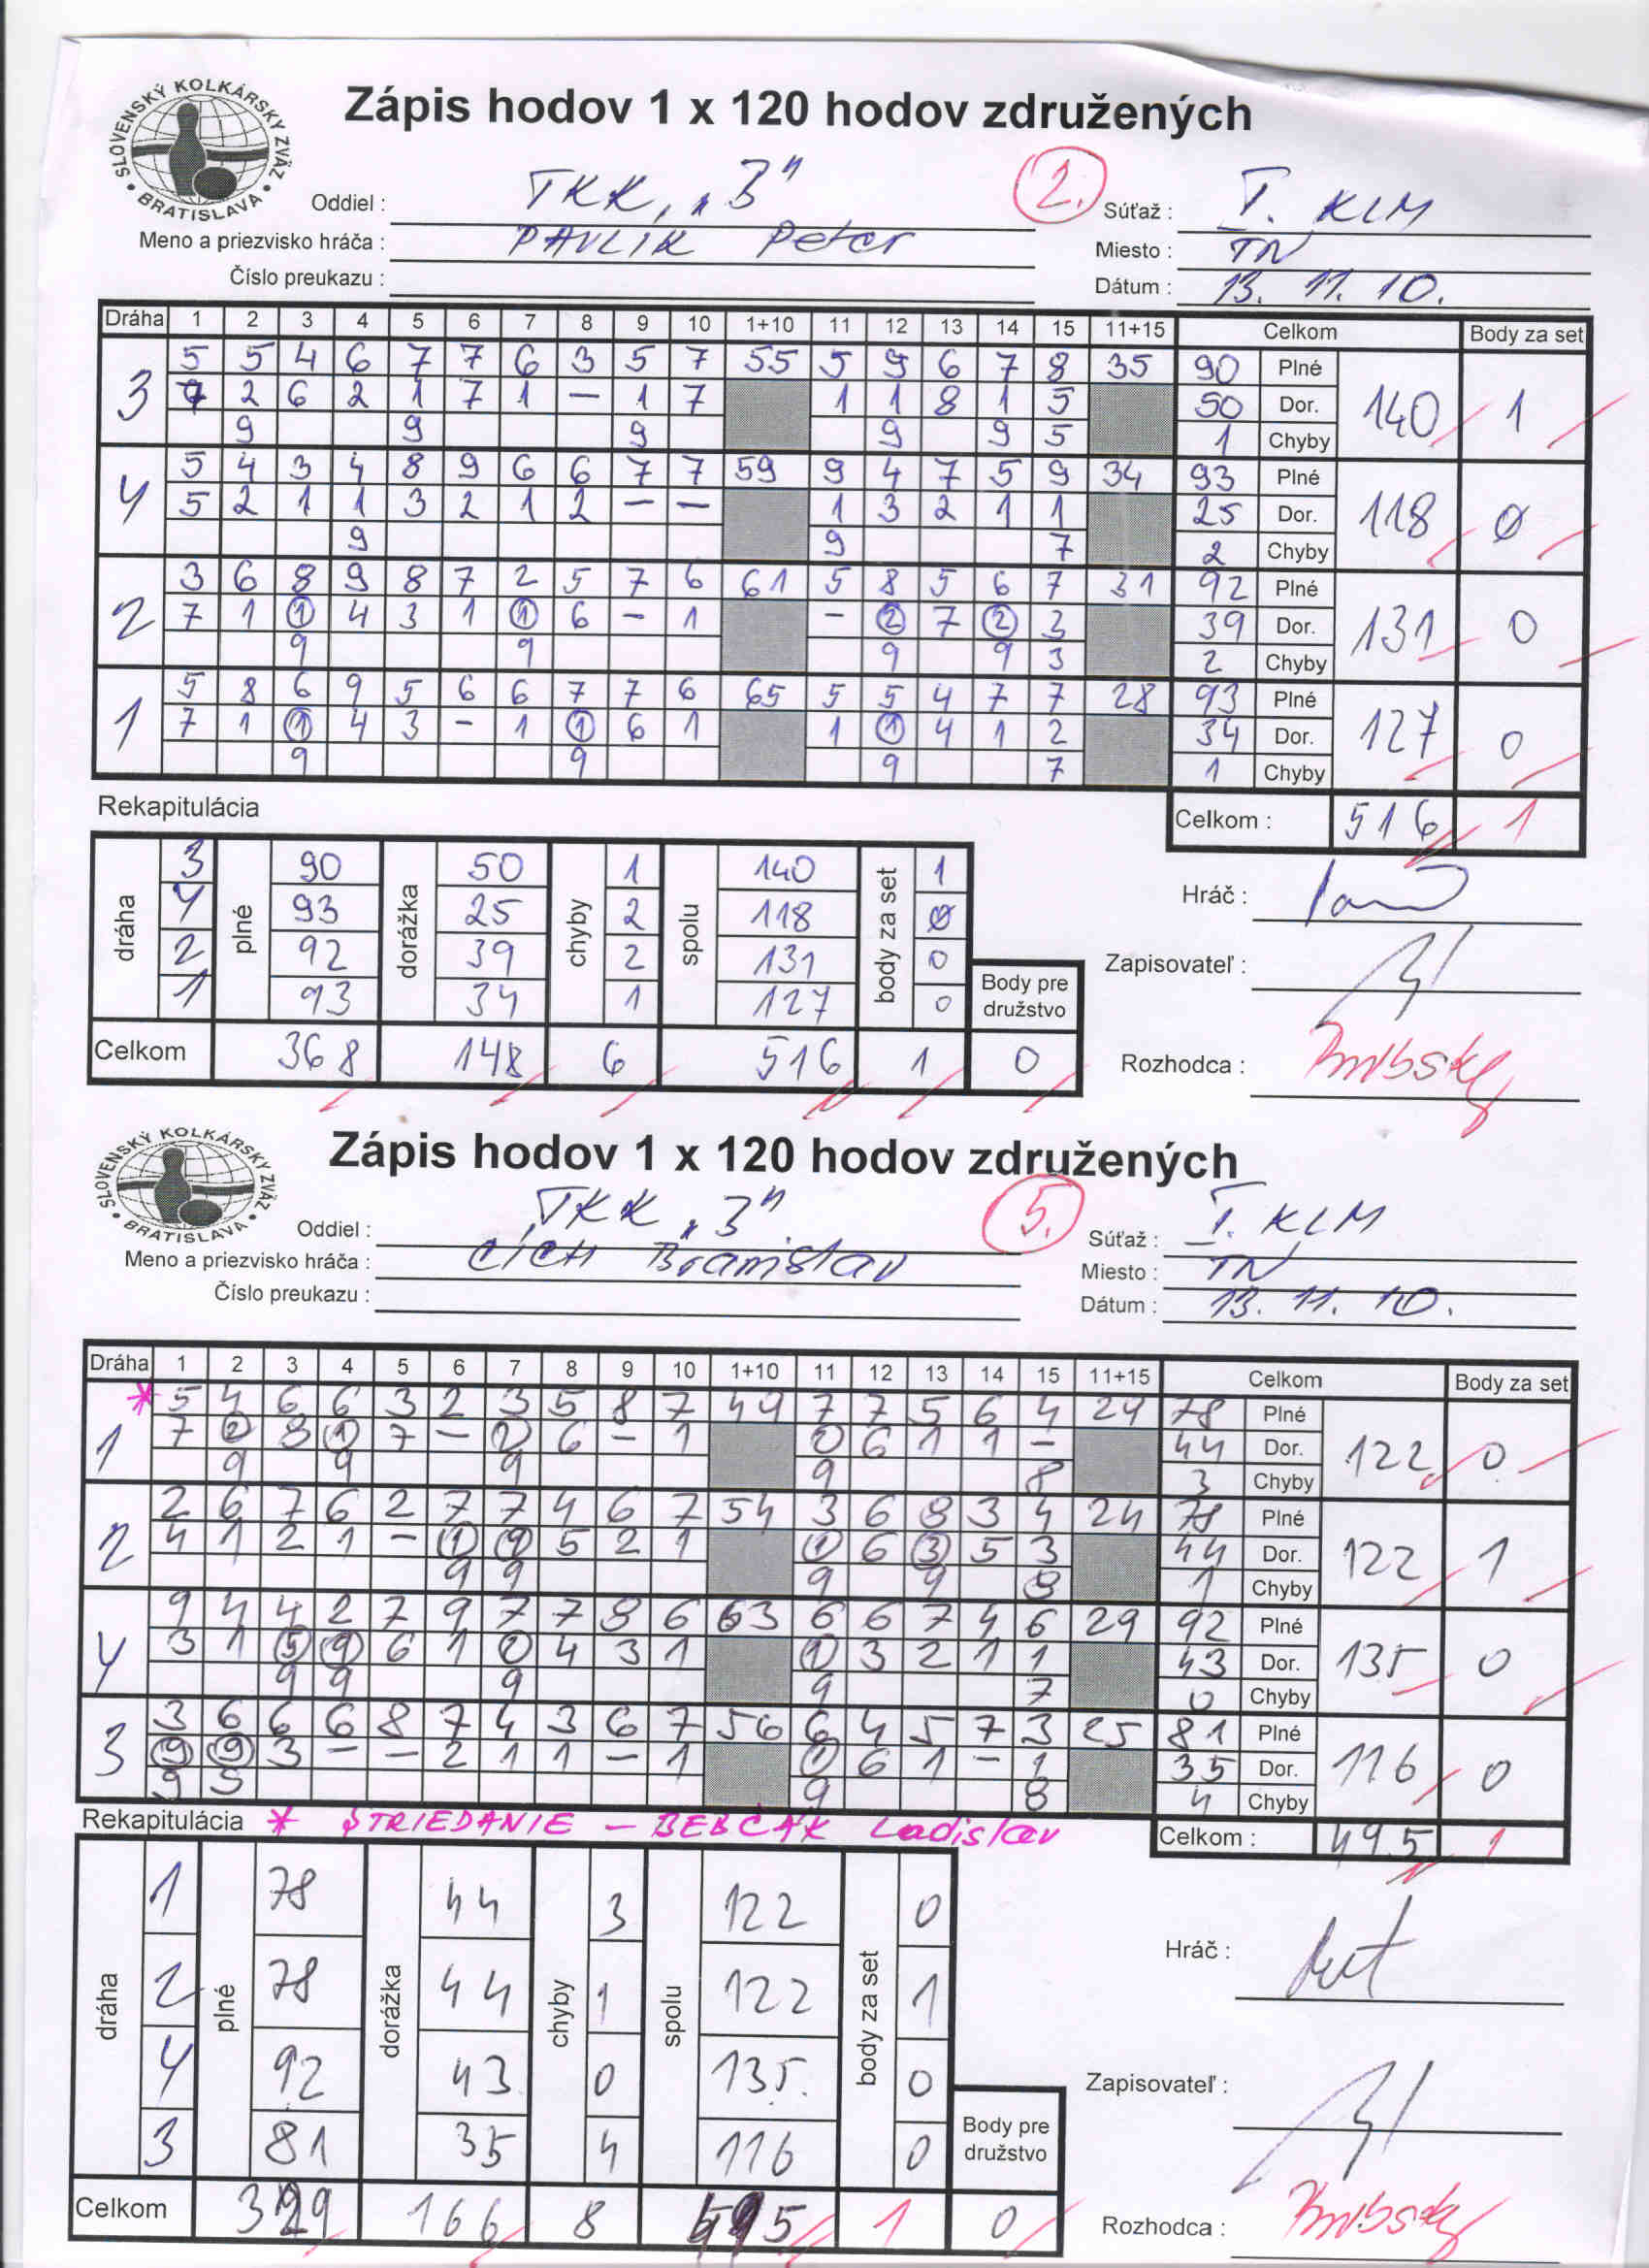 SLOVENSKÝ KOLKÁRSKY ZVÄZ • BRATISLAVA •
Zápis hodov 1 x 120 hodov združených
2.
Oddiel : TKK „B" Súťaž : I. KLM
Meno a priezvisko hráča : PAVLIK Peter Miesto : TN
Číslo preukazu : Dátum : 13. 11. 10.
Dráha 1 2 3 4 5 6 7 8 9 10 1+10 11 12 13 14 15 11+15 Celkom Body za set
3 5 5 4 6 7 7 6 3 5 7 55 5 9 6 7 8 35 90 Plné 140 1
7 2 6 2 1 7 1 – 1 7 1 1 8 1 5 50 Dor.
9 9 9 9 9 5 1 Chyby
4 5 4 3 4 8 9 6 6 7 7 59 9 4 7 5 9 34 93 Plné 118 0
5 2 1 1 3 2 1 2 – – 1 3 2 1 1 25 Dor.
9 9 7 2 Chyby
2 3 6 8 9 8 7 2 5 7 6 61 5 8 5 6 7 31 92 Plné 131 0
7 1 1 4 3 1 1 6 – 1 – 2 7 2 3 39 Dor.
9 9 9 9 3 2 Chyby
1 5 8 6 9 5 6 6 7 7 6 65 5 5 4 7 7 28 93 Plné 127 0
7 1 1 4 3 – 1 1 6 1 1 1 4 1 2 34 Dor.
9 9 9 7 1 Chyby
Rekapitulácia Celkom : 516 1
dráha plné dorážka chyby spolu body za set
3 90 50 1 140 1
4 93 25 2 118 0
2 92 39 2 131 0
1 93 34 1 127 0
Body pre družstvo
Celkom 368 148 6 516 1 0
Hráč :
Zapisovateľ :
Rozhodca :
SLOVENSKÝ KOLKÁRSKY ZVÄZ • BRATISLAVA •
Zápis hodov 1 x 120 hodov združených
5.
Oddiel : TKK „B" Súťaž : I. KLM
Meno a priezvisko hráča : CÍCH Branislav Miesto : TN
Číslo preukazu : Dátum : 13. 11. 10.
Dráha 1 2 3 4 5 6 7 8 9 10 1+10 11 12 13 14 15 11+15 Celkom Body za set
* 1 5 4 6 6 3 2 3 5 8 7 49 7 7 5 6 4 29 78 Plné 122 0
7 2 8 1 7 – 2 6 – 1 0 6 1 1 – 44 Dor.
9 9 9 9 8 3 Chyby
2 2 6 7 6 2 7 7 4 6 7 54 3 6 8 3 4 24 78 Plné 122 1
4 1 2 1 – 1 9 5 2 1 1 6 3 5 3 44 Dor.
9 9 9 9 8 1 Chyby
4 9 4 4 2 7 9 7 7 8 6 63 6 6 7 4 6 29 92 Plné 135 0
3 1 5 9 6 1 2 4 3 1 1 3 2 1 1 43 Dor.
9 9 9 9 7 0 Chyby
3 3 6 6 6 8 7 4 3 6 7 56 6 4 5 7 3 25 81 Plné 116 0
9 9 3 – – 2 1 1 – 1 1 6 1 – 1 35 Dor.
9 9 9 8 4 Chyby
Rekapitulácia * STRIEDANIE – BEBČÁK Ladislav Celkom : 495 1
dráha plné dorážka chyby spolu body za set
1 78 44 3 122 0
2 78 44 1 122 1
4 92 43 0 135 0
3 81 35 4 116 0
Body pre družstvo
Celkom 329 166 8 495 1 0
Hráč :
Zapisovateľ :
Rozhodca :